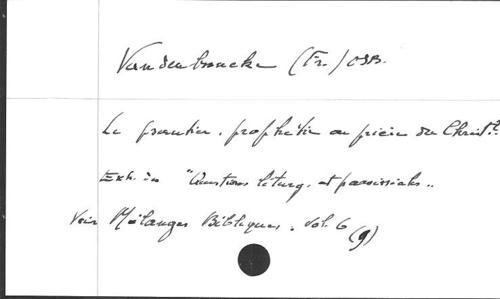 Vandenbroucke (Fr.) OSB.
Le psautier, prophétie ou prière du Christ?
Extr. des "Questions liturg. et paroissiales..
Voir Mélanges Bibliques, vol. 6 (9)